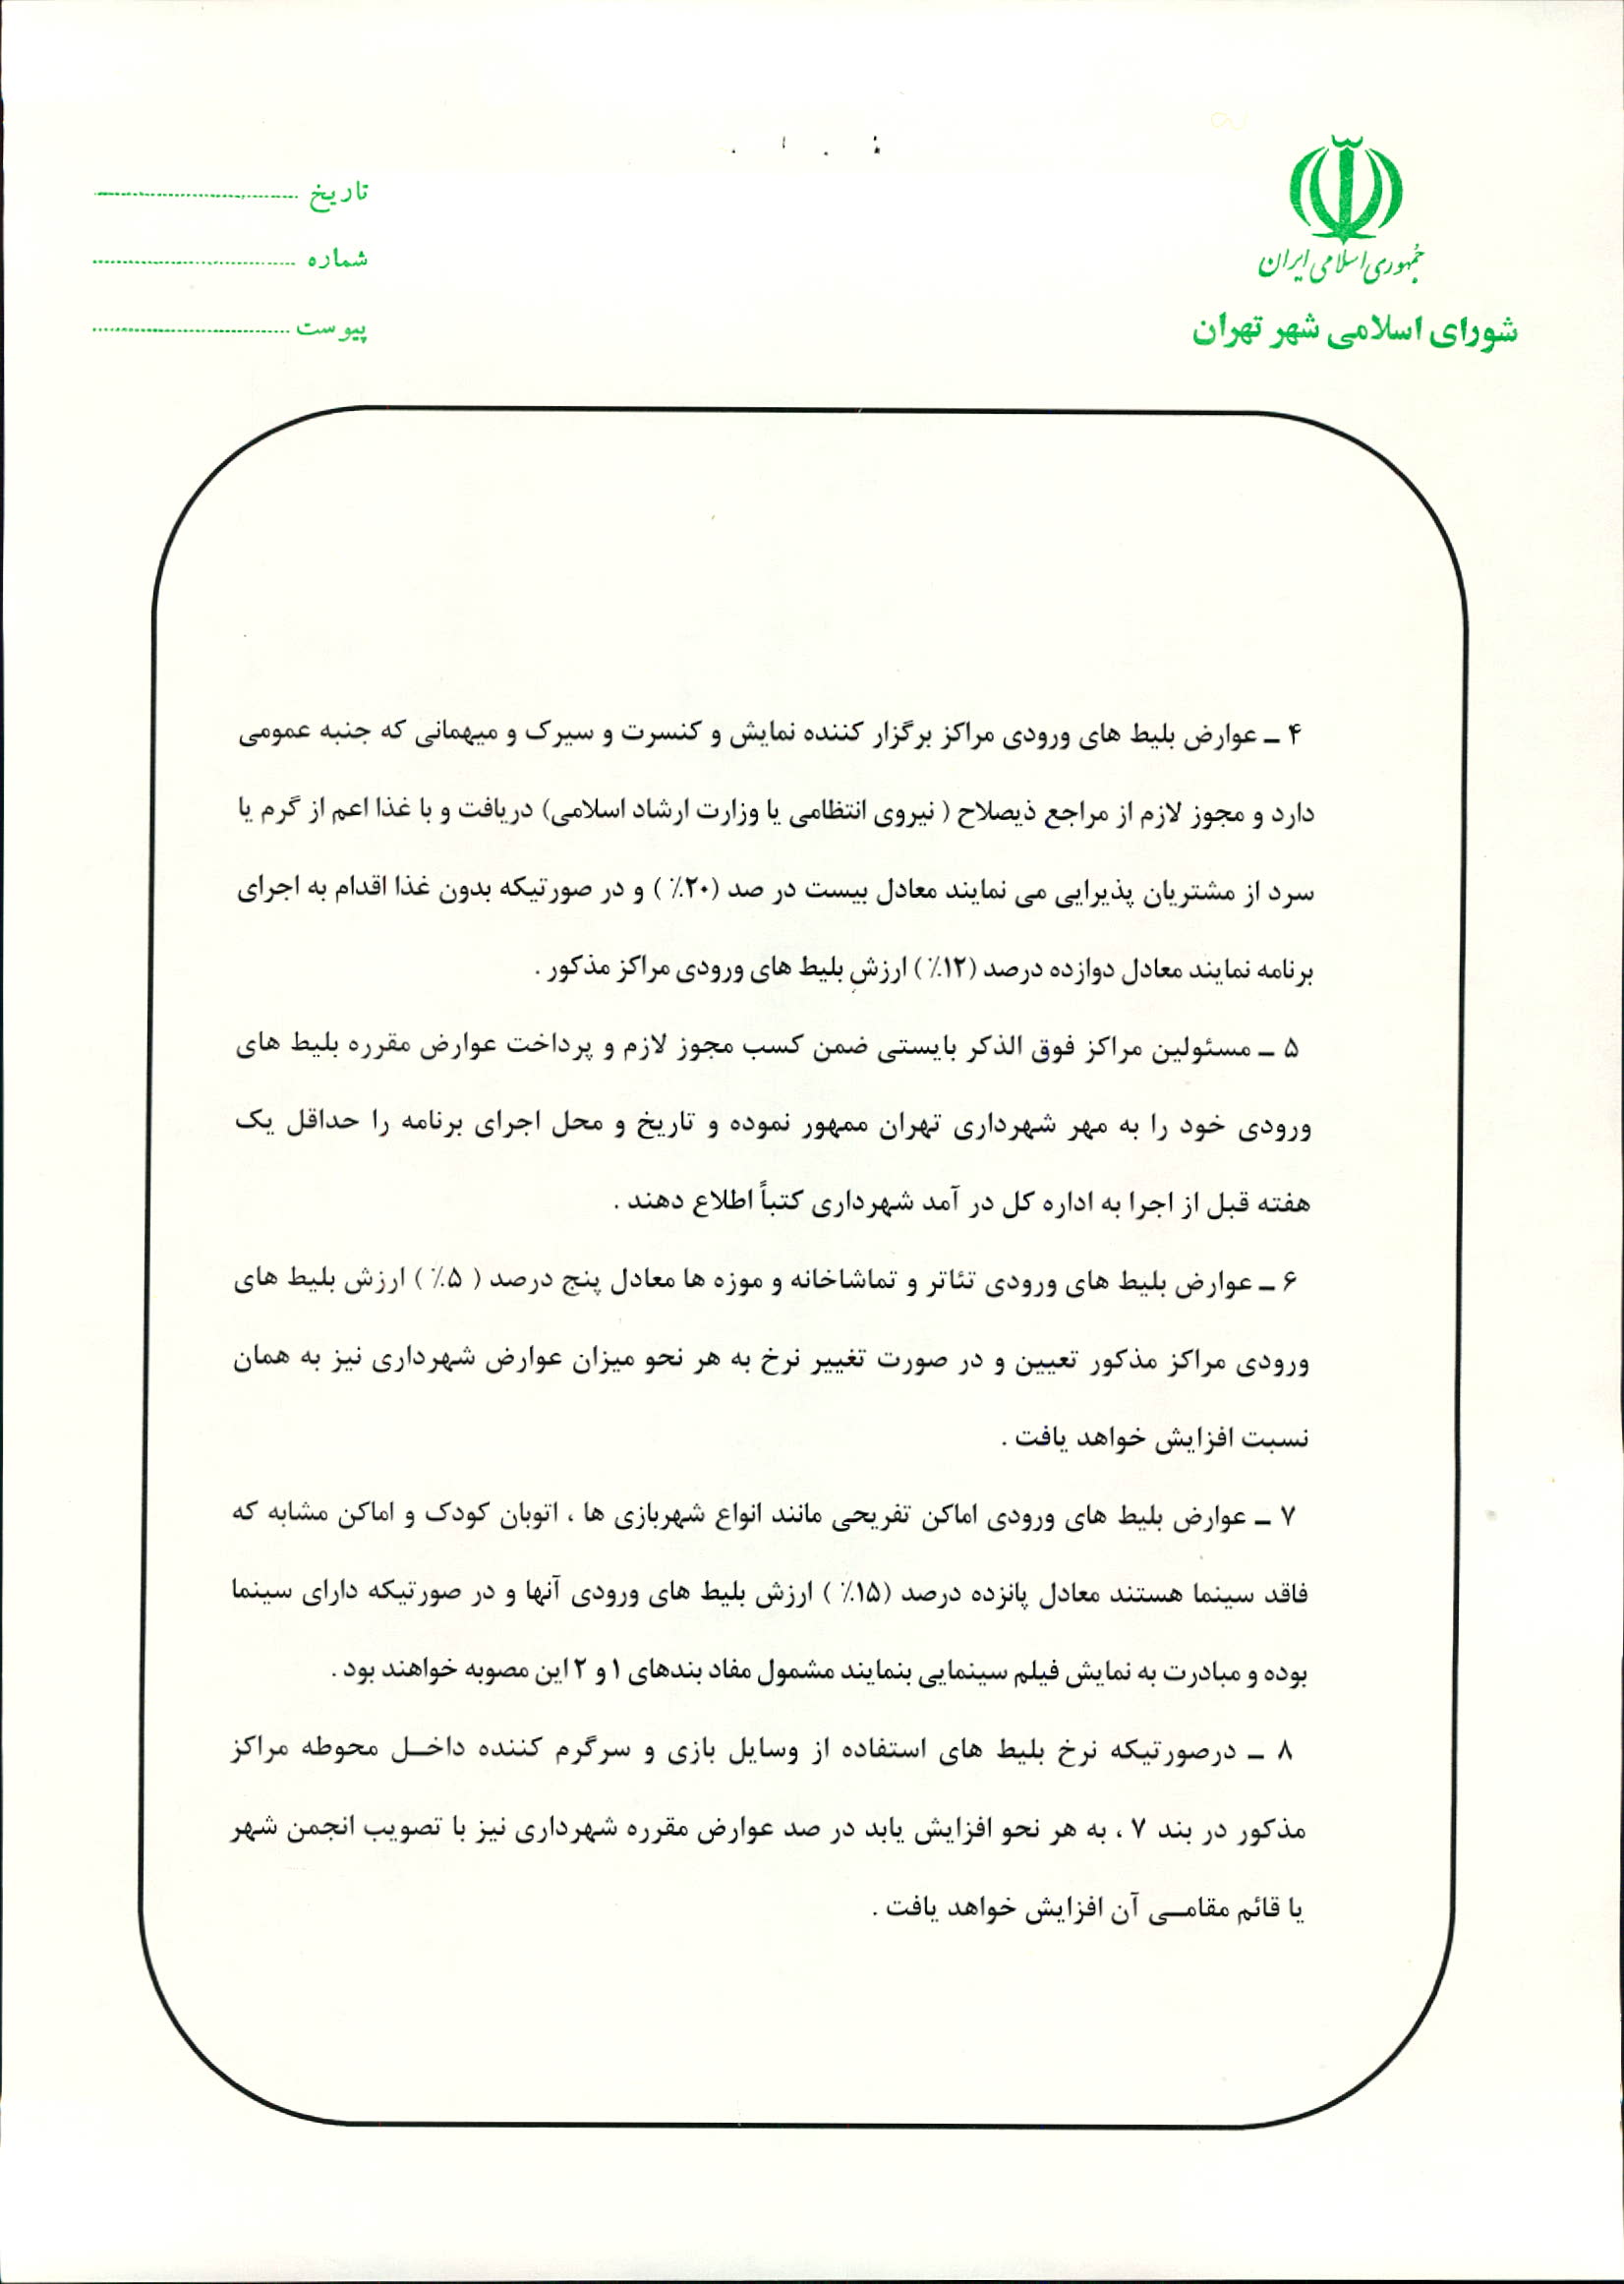 جمهوری اسلامی ایران
شورای اسلامی شهر تهران
تاریخ
شماره
پیوست
۴ ـ عوارض بلیط های ورودی مراکز برگزار کننده نمایش و کنسرت و سیرک و میهمانی که جنبه عمومی
دارد و مجوز لازم از مراجع ذیصلاح ( نیروی انتظامی یا وزارت ارشاد اسلامی) دریافت و با غذا اعم از گرم یا
سرد از مشتریان پذیرایی می نمایند معادل بیست در صد (۲۰٪ ) و در صورتیکه بدون غذا اقدام به اجرای
برنامه نمایند معادل دوازده درصد (۱۲٪ ) ارزش بلیط های ورودی مراکز مذکور .
۵ ـ مسئولین مراکز فوق الذکر بایستی ضمن کسب مجوز لازم و پرداخت عوارض مقرره بلیط های
ورودی خود را به مهر شهرداری تهران ممهور نموده و تاریخ و محل اجرای برنامه را حداقل یک
هفته قبل از اجرا به اداره کل در آمد شهرداری کتباً اطلاع دهند .
۶ ـ عوارض بلیط های ورودی تئاتر و تماشاخانه و موزه ها معادل پنج درصد ( ۵٪ ) ارزش بلیط های
ورودی مراکز مذکور تعیین و در صورت تغییر نرخ به هر نحو میزان عوارض شهرداری نیز به همان
نسبت افزایش خواهد یافت .
۷ ـ عوارض بلیط های ورودی اماکن تفریحی مانند انواع شهربازی ها ، اتوبان کودک و اماکن مشابه که
فاقد سینما هستند معادل پانزده درصد (۱۵٪ ) ارزش بلیط های ورودی آنها و در صورتیکه دارای سینما
بوده و مبادرت به نمایش فیلم سینمایی بنمایند مشمول مفاد بندهای ۱ و ۲ این مصوبه خواهند بود .
۸ ـ درصورتیکه نرخ بلیط های استفاده از وسایل بازی و سرگرم کننده داخـل محوطه مراکز
مذکور در بند ۷ ، به هر نحو افزایش یابد در صد عوارض مقرره شهرداری نیز با تصویب انجمن شهر
یا قائم مقامـی آن افزایش خواهد یافت .